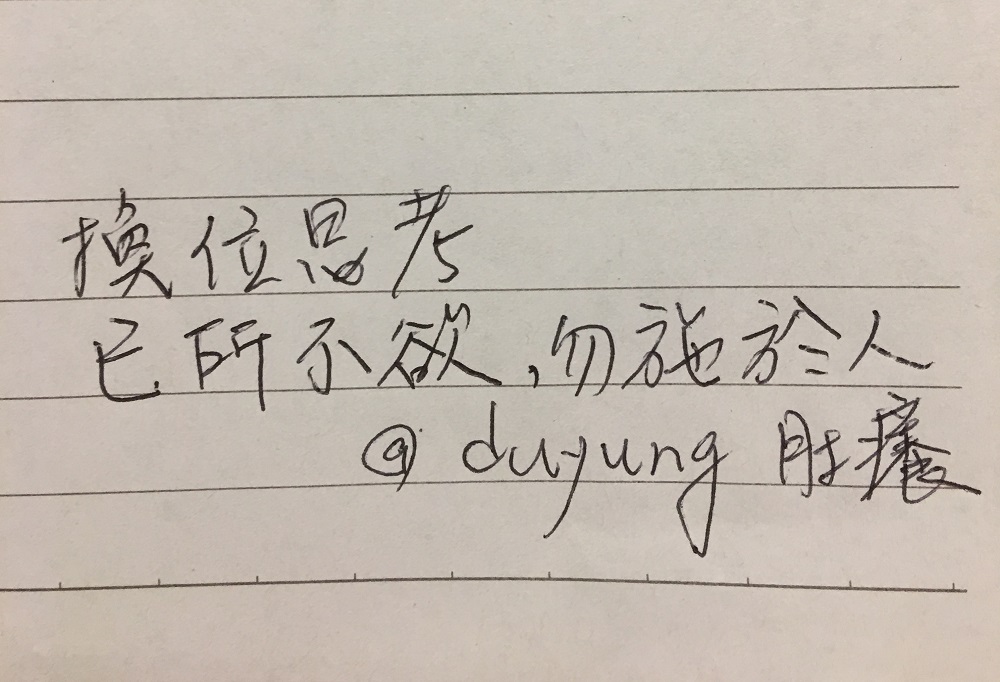 換位思考
己所不欲,勿施於人
@duyung 肚癢